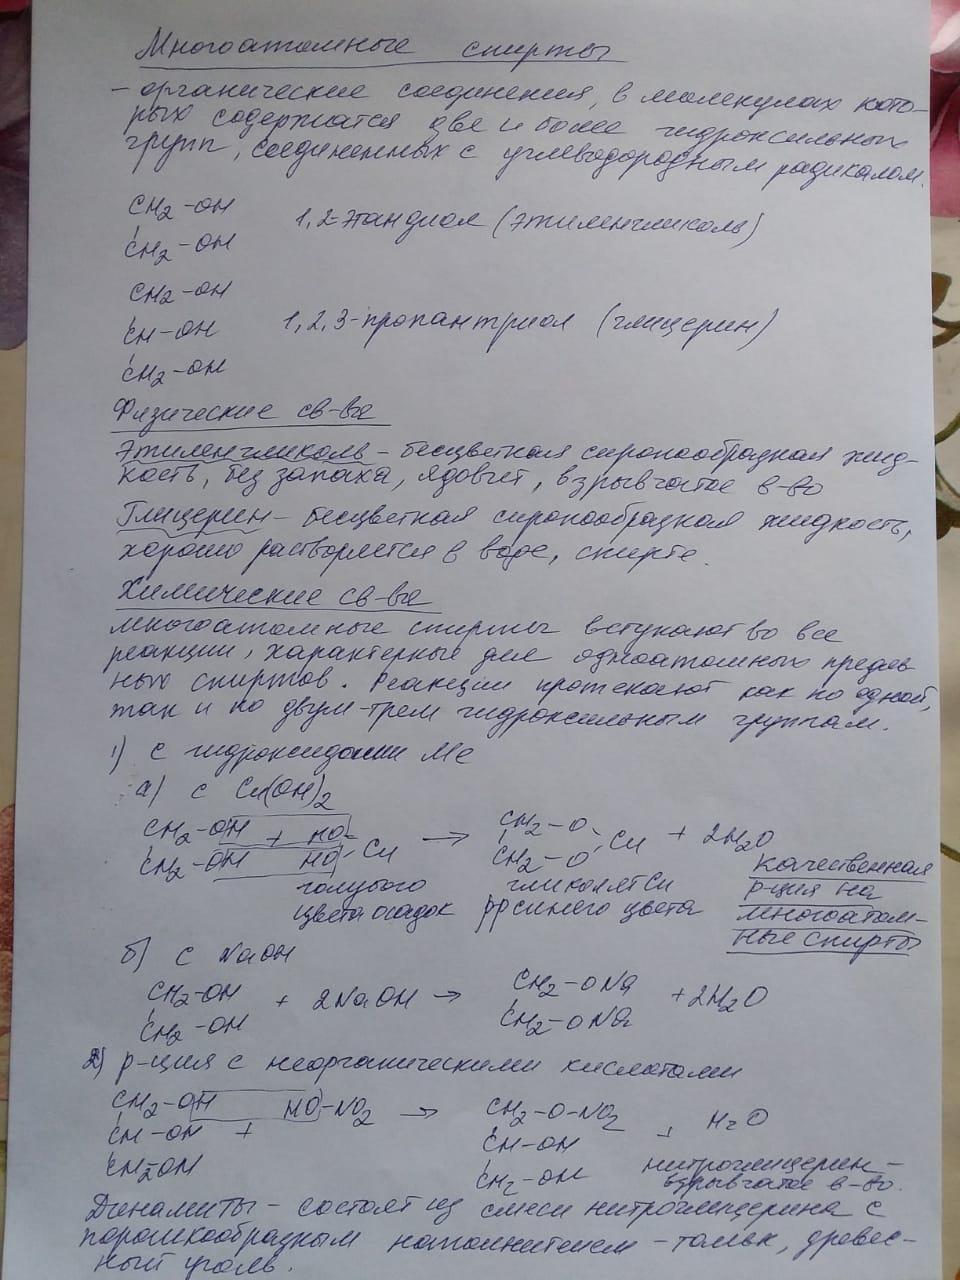 Многоатомные спирты
- органические соединения, в молекулах кото-
рых содержатся две и более гидроксильных
групп, соединенных с углеводородным радикалом.
CH2-OH
CH2-OH
1,2-этандиол (этиленгликоль)
CH2-OH
CH-OH
1,2,3-пропантриол (глицерин)
CH2-OH
Физические св-ва
Этиленгликоль - бесцветная сиропообразная жид-
кость, без запаха, ядовит, взрывчатое в-во
Глицерин - бесцветная сиропообразная жидкость,
хорошо растворяется в воде, спирте.
Химические св-ва
многоатомные спирты вступают во все
реакции, характерные для одноатомных предель
ных спиртов. Реакции протекают как по одной,
так и по двум-трем гидроксильным группам.
1) с гидроксидами Me
а) с Cu(OH)2
CH2-OH + HO
CH2-OH HO - Cu → CH2-O
CH2-O Cu + 2H2O
голубого
цвета осадок
гликолят Cu
р-р синего цвета
качественная
р-ция на
многоатом-
ные спирты
б) с NaOH
CH2-OH
CH2-OH + 2NaOH → CH2-ONa
CH2-ONa + 2H2O
2) р-ция с неорганическими кислотами
CH2-OH HO-NO2 → CH2-O-NO2
CH-OH + CH-OH + H2O
CH2-OH CH2-OH
нитроглицерин -
взрывчатое в-во.
Динамиты - состоят из смеси нитроглицерина с
порошкообразным наполнителем - тальк, древес-
ный уголь.